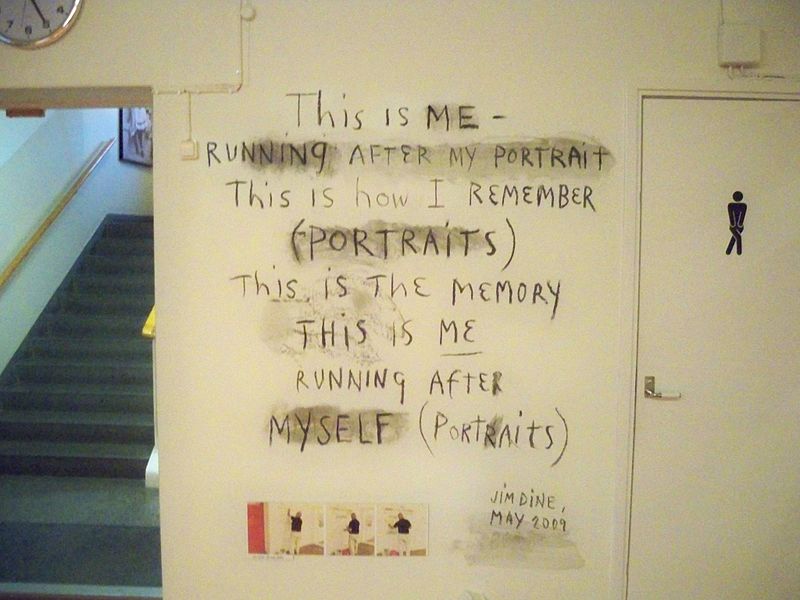 This is ME -
RUNNING AFTER MY PORTRAIT
This is how I REMEMBER
(PORTRAITS)
This is The MEMORY
THIS is ME
RUNNING AFTER
MYSELF (PORTRAITS)
JIM DINE,
MAY 2009
7 6 5 4 3